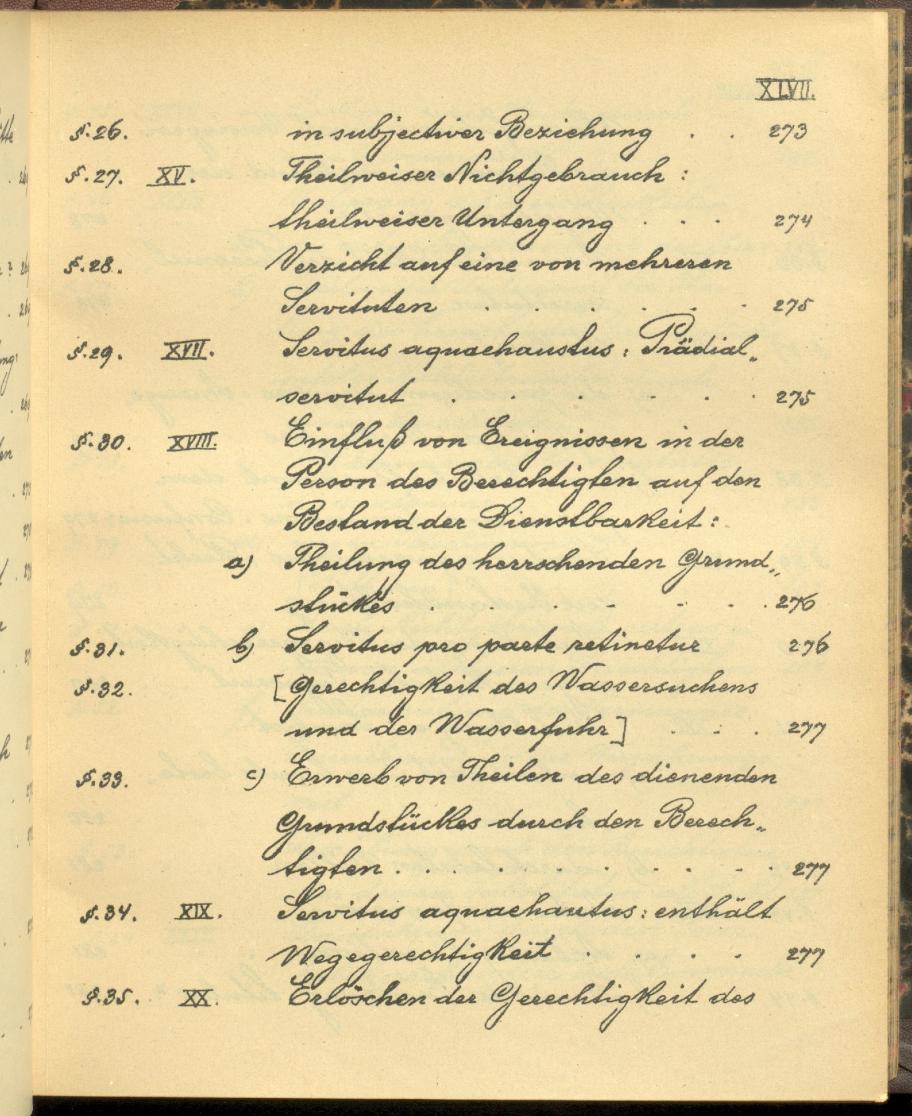 XLVII.
§.26. in subjectiver Beziehung . . . 273
§.27. XV. Theilweiser Nichtgebrauch :
theilweiser Untergang . . . . 274
§.28. Verzicht auf eine von mehreren
Servituten . . . . . . 275
§.29. XVII. Servitus aquaehaustus : Prädial„
servitut . . . . . . 275
§.30. XVIII. Einfluß von Ereignissen in der
Person des Berechtigten auf den
Bestand der Dienstbarkeit :
a) Theilung des herrschenden Grund„
stückes . . . . . . 276
§.31. b) Servitus pro parte retinetur 276
§.32. [Gerechtigkeit des Wassersuchens
und der Wasserfuhr] . . . 277
§.33. c) Erwerb von Theilen des dienenden
Grundstückes durch den Berech„
tigten . . . . . . . . . 277
§.34. XIX. Servitus aquaehautus : enthält
Wegegerechtigkeit . . . . 277
§.35. XX. Erlöschen der Gerechtigkeit des